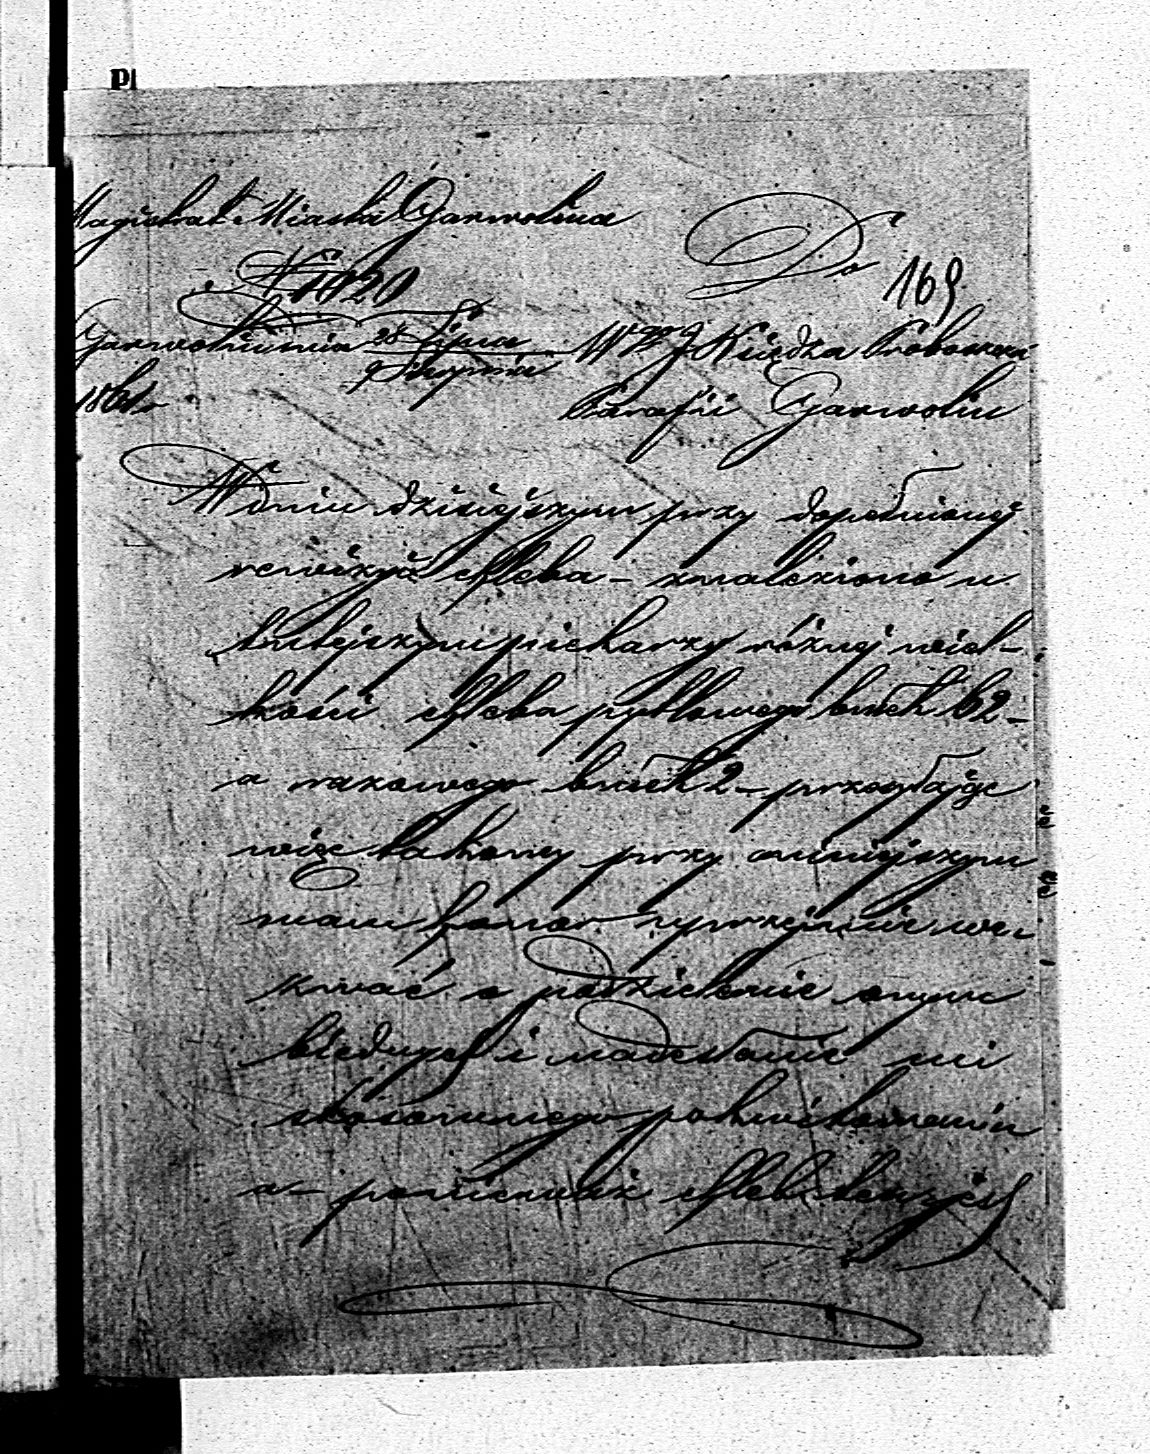 Magistrat Miasta Garwolina
№ 1020
Do
169
Garwolin dnia 28 Lipca
9 Sierpnia
186 r
W JX Księdza Proboszcza
Parafii Garwolin
W dniu dzisiejszym przy dopełnionej
rewizyi chleba – znaleziono u
tutejszych piekarzy różnej wiel-
kości chleba pytlowego bułek 62 –
a razowego bułek 2 – przesyłając
więc takowy przy niniejszym
mam honor uprzejmie we-
zwać o podzielenie onym
biednych i nadesłanie mi
stosownego pokwitowania
a – ponieważ chleb